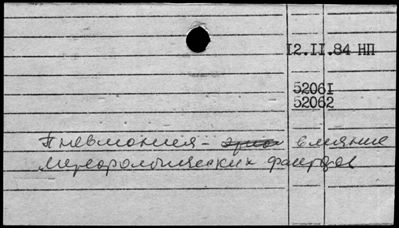 12.II.84 НП
52061
52062
Пневмония - влияние
метеорологических факторов